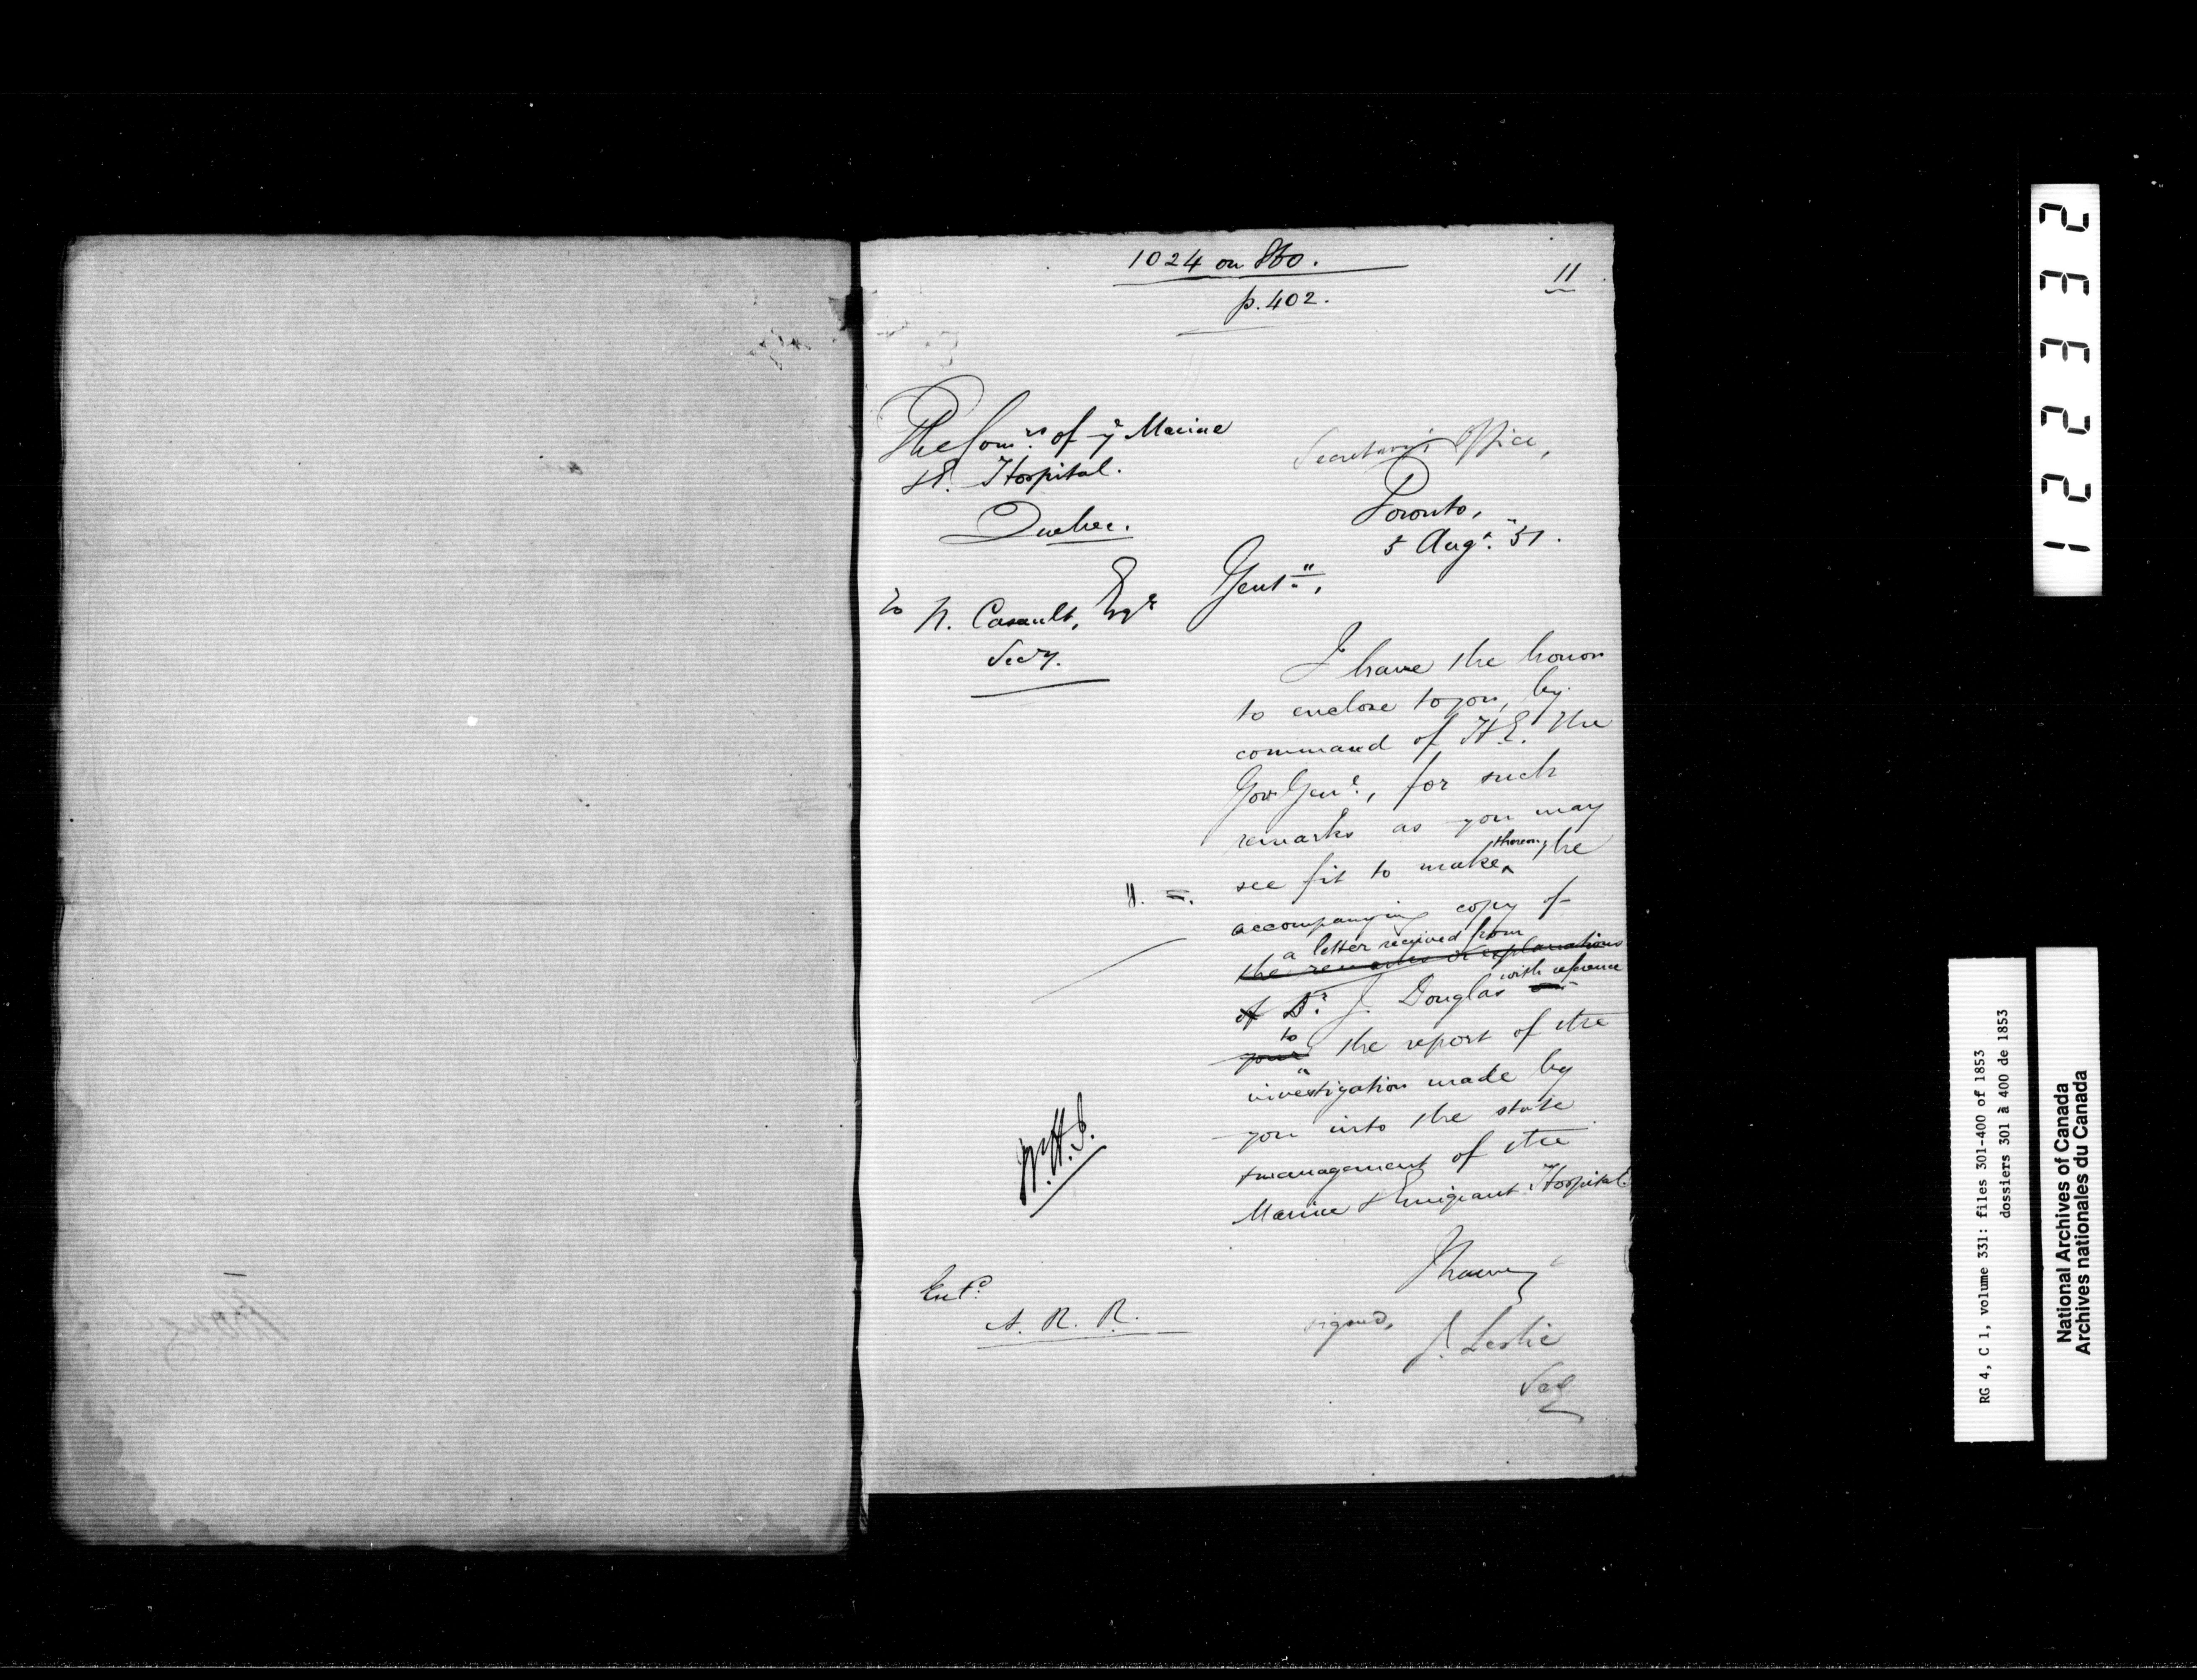 1024 on 860.
p. 402.
11
The Comrs. of ye Marine
& E. Hospital.
Quebec.
to N. Casault, Esqr
Secy.
Secretary's Office,
Toronto,
5 Augt. '51.
Gentn.,
I have the honor
to enclose to you, by
command of H.E. the
Gov Genl., for such
remarks as you may
see fit to make thereon, the
accompanying copy of
a letter received from
the remarks or explanations
of Dr. J. Douglas with reference
to
your the report of the
investigation made by
you into the state
& management of the
Marine & Emigrant Hospital
signed,
J. Leslie
Secy
Entd.
A. R. R.
12332
RG 4, C 1, volume 331: files 301-400 of 1853
dossiers 301 à 400 de 1853
National Archives of Canada
Archives nationales du Canada